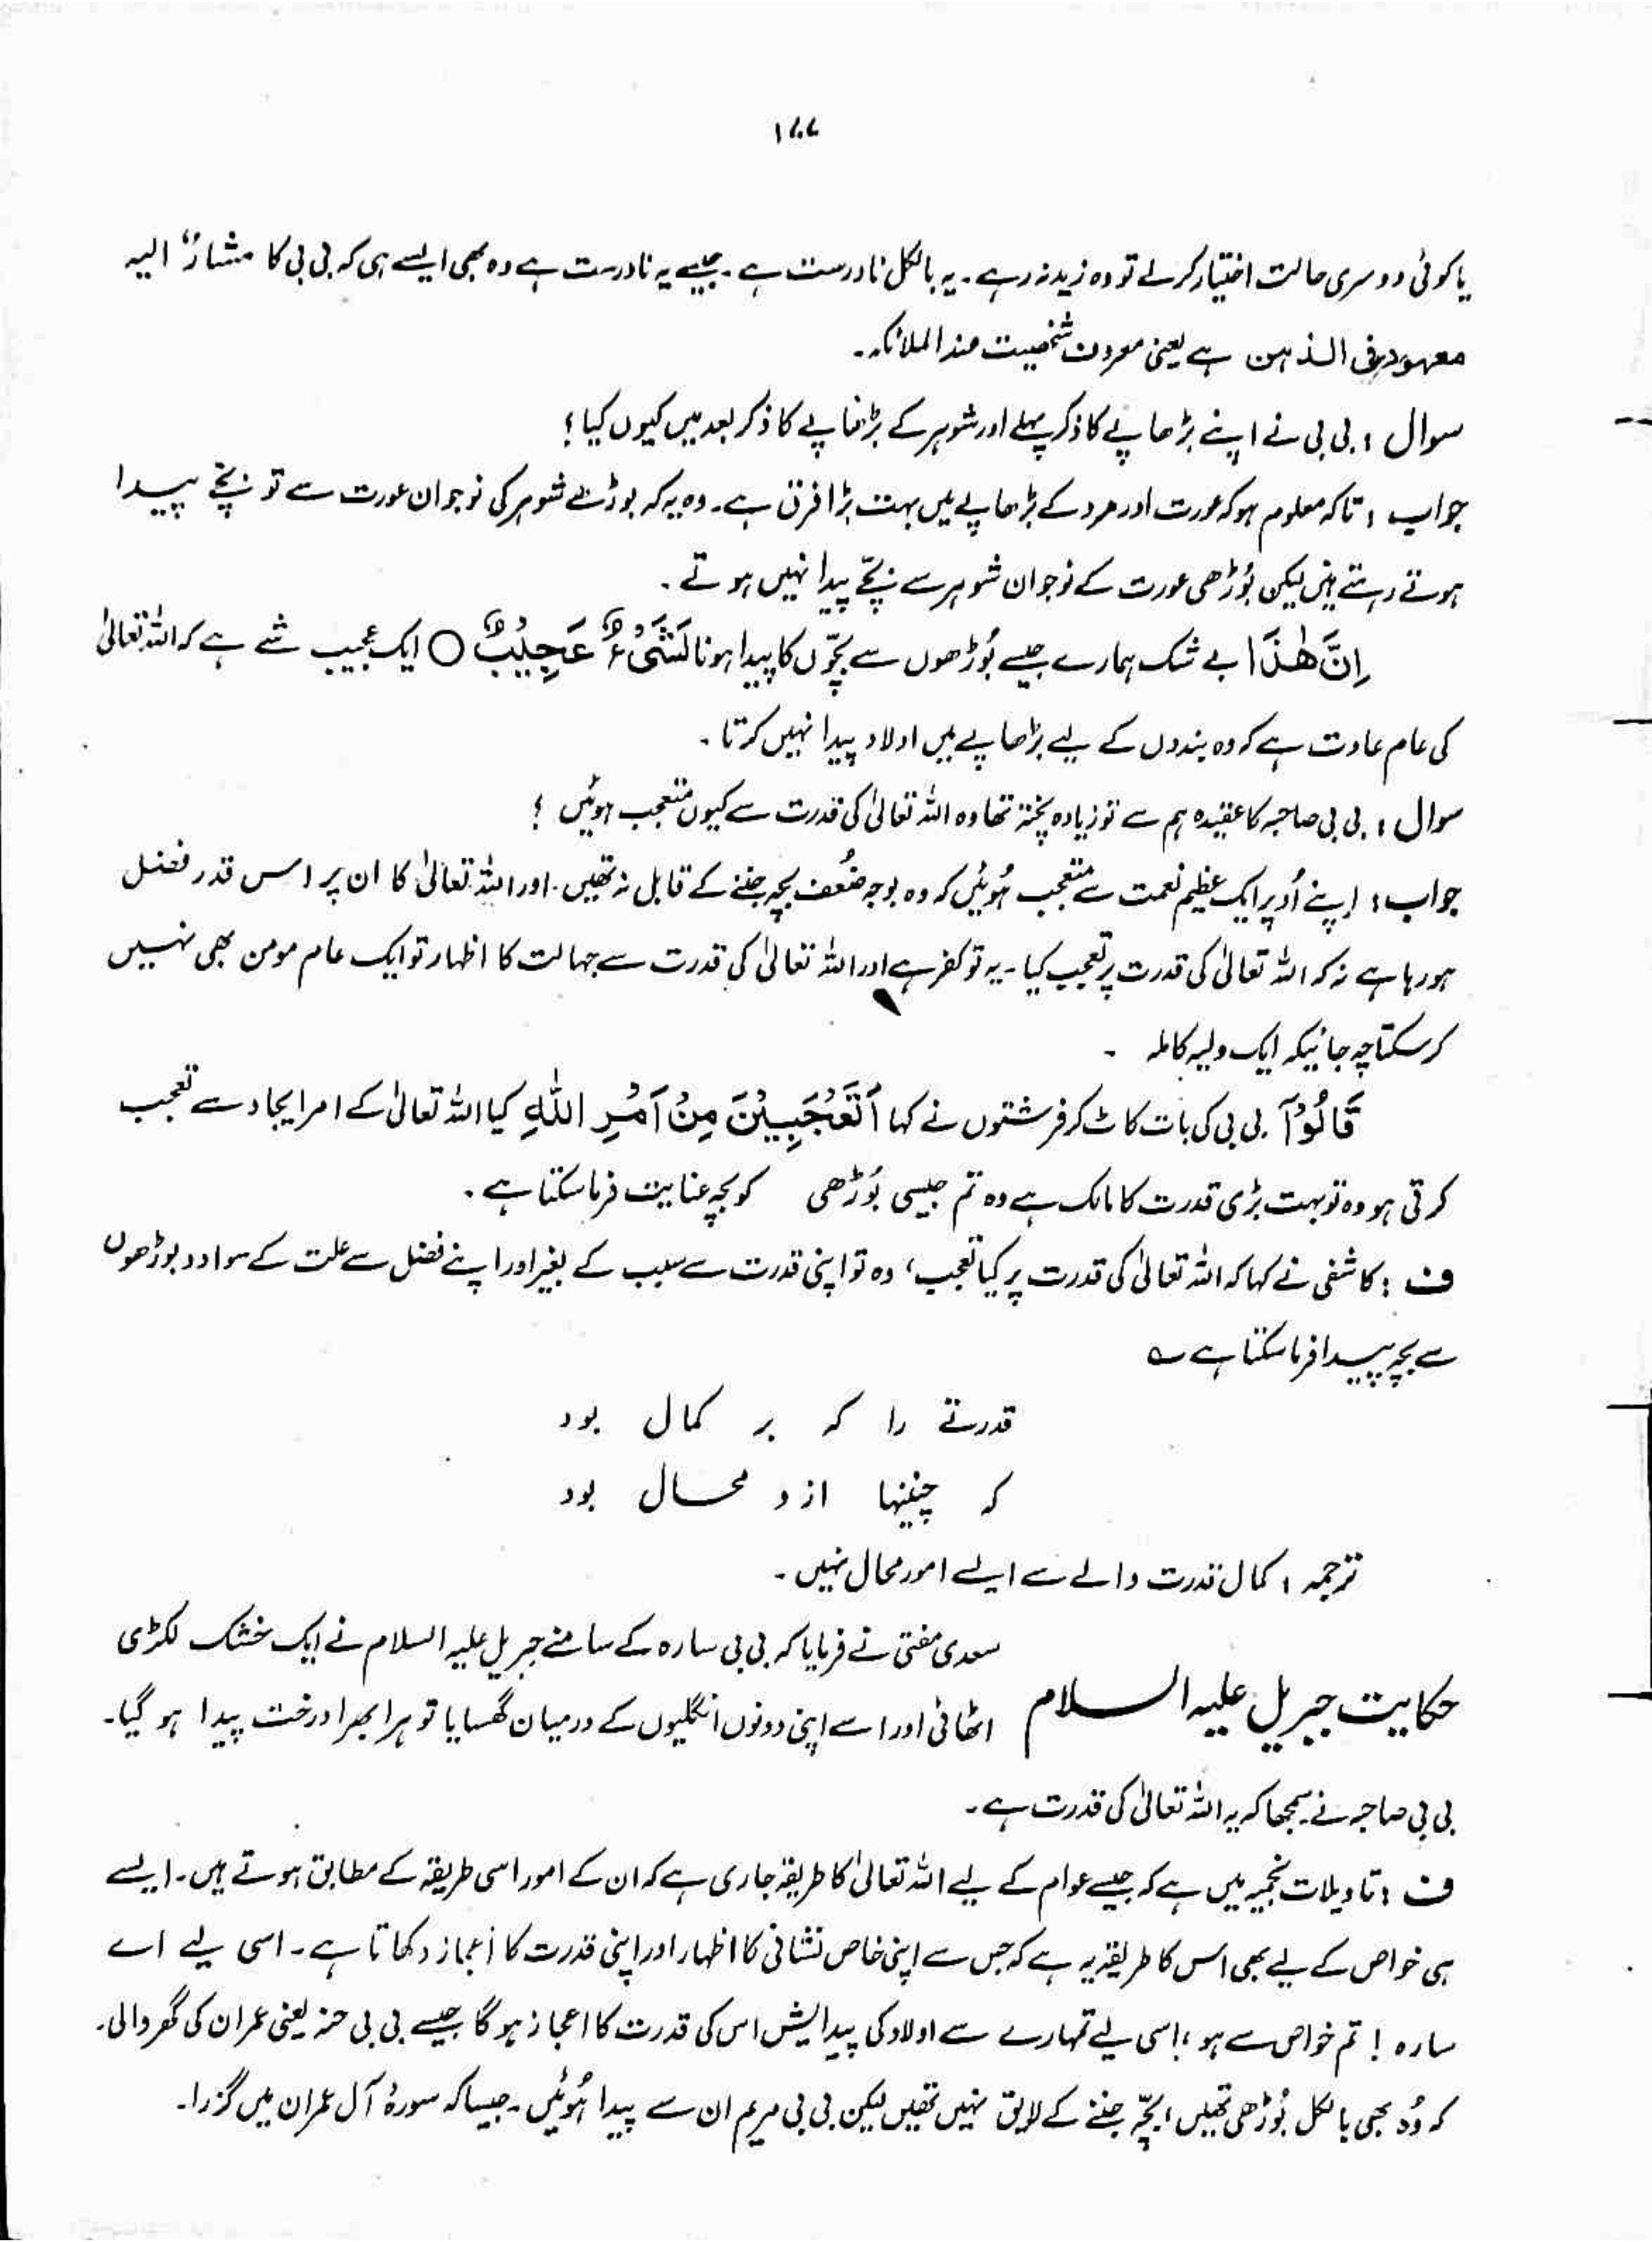 ۱۷۷
یا کوئی دوسری حالت اختیار کر لے تو وہ زید نہ رہے۔ یہ بالکل نادرست ہے۔ جیسے یہ نادرست ہے وہ بھی ایسے ہی کہ بی بی کا مشارٌ الیہ
معہود فی الذہن ہے یعنی معروف شخصیت عند الملائکہ۔
سوال : بی بی نے اپنے بڑھاپے کا ذکر پہلے اور شوہر کے بڑھاپے کا ذکر بعد میں کیوں کیا ؟
جواب : تاکہ معلوم ہو کہ عورت اور مرد کے بڑھاپے میں بہت بڑا فرق ہے۔ وہ یہ کہ بوڑھے شوہر کی نوجوان عورت سے تو بچے پیدا
ہوتے رہتے ہیں لیکن بُوڑھی عورت کے نوجوان شوہر سے بچّے پیدا نہیں ہوتے ۔
اِنَّ هٰذَا بے شک ہمارے جیسے بُوڑھوں سے بچّوں کا پیدا ہونا لَشَیْءٌ عَجِیْبٌ ○ ایک عجیب شے ہے کہ اللہ تعالیٰ
کی عام عادت ہے کہ وہ بندوں کے لیے بڑھاپے میں اولاد پیدا نہیں کرتا ۔
سوال : بی بی صاحبہ کا عقیدہ ہم سے تو زیادہ پختہ تھا وہ اللہ تعالیٰ کی قدرت سے کیوں متعجب ہوئیں ؟
جواب : اپنے اُوپر ایک عظیم نعمت سے متعجب ہُوئیں کہ وہ بوجہ ضُعف بچہ جننے کے قابل نہ تھیں۔ اور اللہ تعالیٰ کا ان پر اس قدر فضل
ہو رہا ہے نہ کہ اللہ تعالیٰ کی قدرت پر تعجب کیا۔ یہ تو کفر ہے اور اللہ تعالیٰ کی قدرت سے جہالت کا اظہار تو ایک عام مومن بھی نہیں
کر سکتا چہ جائیکہ ایک ولیہ کاملہ ۔
قَالُوْٓا بی بی کی بات کاٹ کر فرشتوں نے کہا اَتَعْجَبِیْنَ مِنْ اَمْرِ اللّٰهِ کیا اللہ تعالیٰ کے امر ایجاد سے تعجب
کرتی ہو وہ تو بہت بڑی قدرت کا مالک ہے وہ تم جیسی بُوڑھی کو بچہ عنایت فرما سکتا ہے ۔
ف : کاشفی نے کہا کہ اللہ تعالیٰ کی قدرت پر کیا تعجب، وہ تو اپنی قدرت سے سبب کے بغیر اور اپنے فضل سے علت کے سوا دو بوڑھوں
سے بچہ پیدا فرما سکتا ہے ؎
قدرتے را کہ بر کمال بود
کہ چنینہا ازو محال بود
ترجمہ : کمال قدرت والے سے ایسے امور محال نہیں ۔
حکایت جبریل علیہ السلام
سعدی مفتی نے فرمایا کہ بی بی سارہ کے سامنے جبریل علیہ السلام نے ایک خشک لکڑی
اٹھائی اور اسے اپنی دونوں انگلیوں کے درمیان گھسایا تو ہرا بھرا درخت پیدا ہو گیا۔
بی بی صاحبہ نے سمجھا کہ یہ اللہ تعالیٰ کی قدرت ہے۔
ف : تاویلات نجمیہ میں ہے کہ جیسے عوام کے لیے اللہ تعالیٰ کا طریقہ جاری ہے کہ ان کے امور اسی طریقہ کے مطابق ہوتے ہیں۔ ایسے
ہی خواص کے لیے بھی اس کا طریقہ یہ ہے کہ جس سے اپنی خاص نشانی کا اظہار اور اپنی قدرت کا اعجاز دکھاتا ہے۔ اسی لیے اے
سارہ ! تم خواص سے ہو ، اسی لیے تمہارے سے اولاد کی پیدایش اس کی قدرت کا اعجاز ہو گا جیسے بی بی حنہ یعنی عمران کی گھر والی۔
کہ وُہ بھی بالکل بُوڑھی تھیں ، بچّہ جننے کے لایق نہیں تھیں لیکن بی بی مریم ان سے پیدا ہُوئیں۔ جیسا کہ سورۂ آل عمران میں گزرا۔